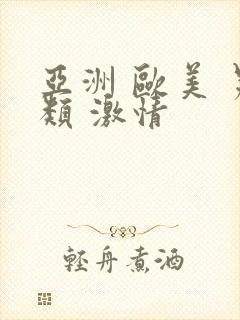 亞洲 歐美 
類 激情
輕舟煮酒